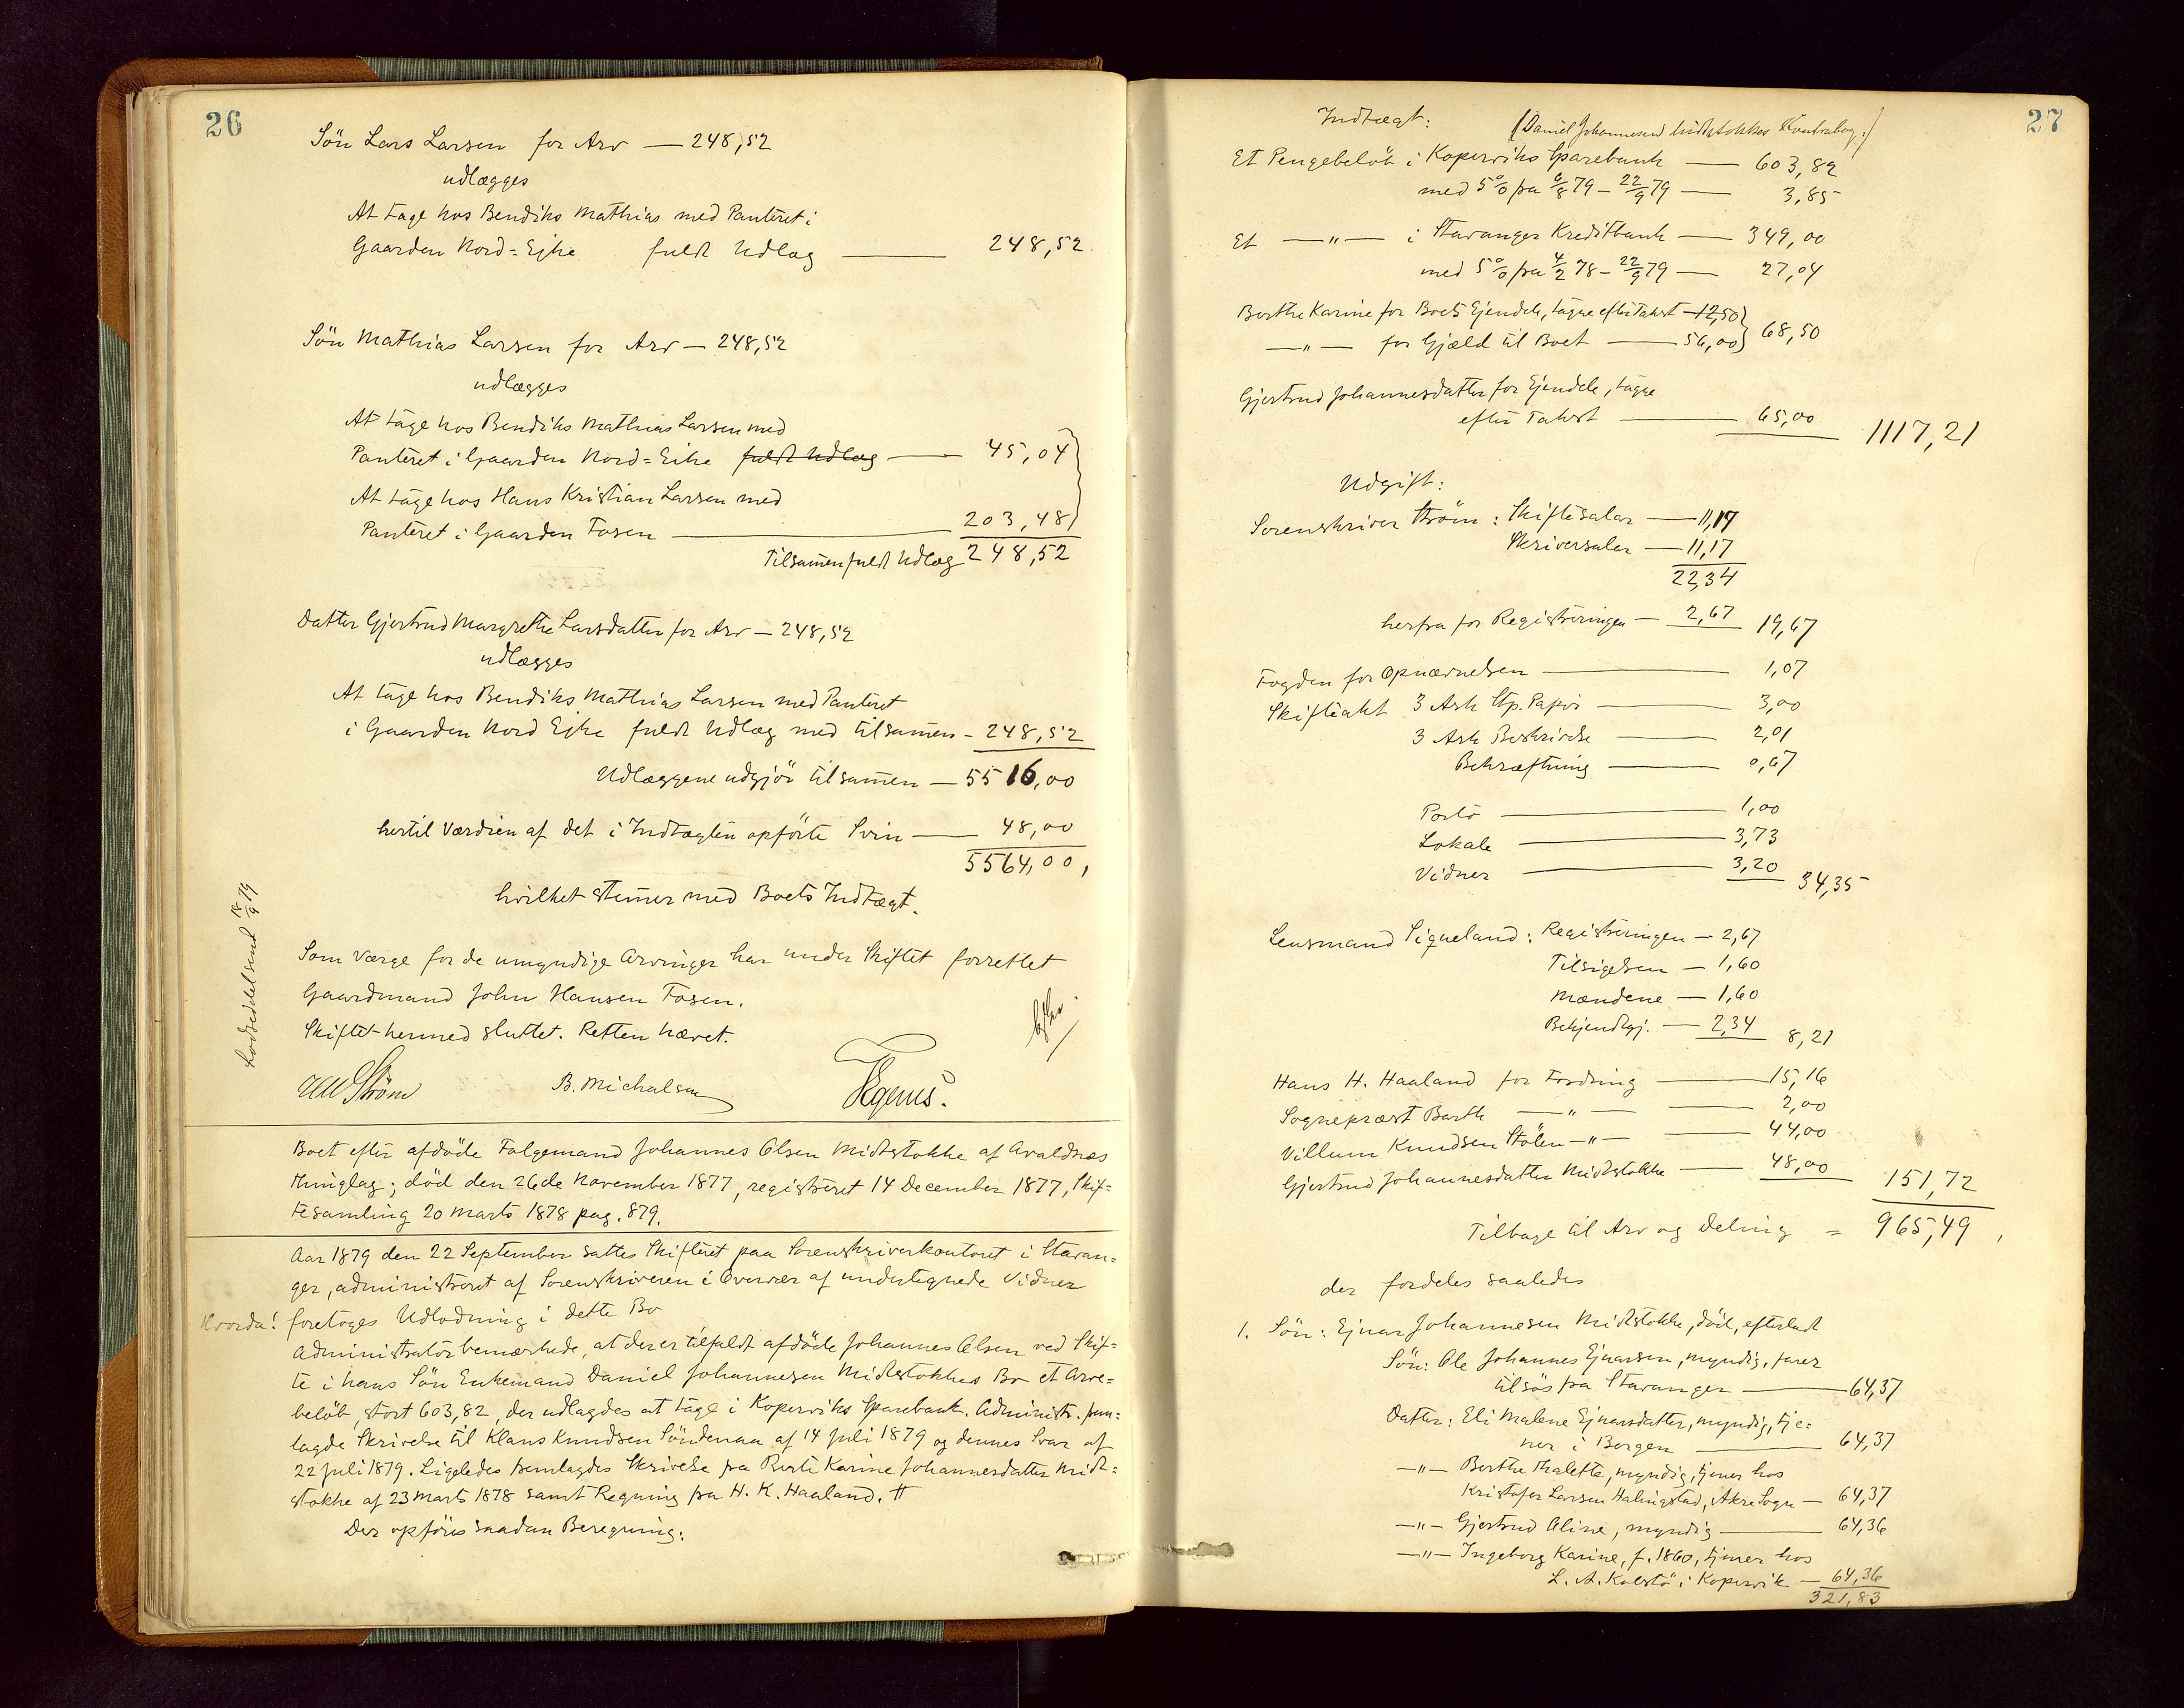 26
Søn Lars Larsen for Arv — 248,52
udlægges
At tage hos Bendiks Mathias med Panteret i
Gaarden Nord-Ejke fuldt Udlæg — 248,52
Søn Mathias Larsen for Arv — 248,52
udlægges
At tage hos Bendiks Mathias Larsen med
Panteret i Gaarden Nord-Eike fuldt Udlæg — 45,04
At tage hos Hans Kristian Larsen med
Panteret i Gaarden Fosen — 203,48
Tilsamen fuldt Udlæg 248,52
Datter Gjertrud Margrethe Larsdatter for Arv — 248,52
udlægges
At tage hos Bendiks Mathias Larsen med Panteret
i Gaarden Nord Ejke fuldt Udlæg med tilsamen - 248,52
Udlæggene udgjör tilsamen — 5516,00
hertil Værdien af det i Indtægten opförte Svin — 48,00
5564,00,
hvilket stemer med Boets Indtægt.
Lodseddel sendt 18/9 79
Som Værge for de umyndige Arvinger har under Skiftet forrettet
Gaardmand John Hansen Fosen.
Skiftet hermed sluttet. Retten hævet.
Ström B. Michalsen Tegeus.
Boet efter afdöde Folgemand Johannes Olsen Midtstokke af Avaldsnes
Thinglag; död den 26de November 1877, registreret 14 December 1877, Skif=
tesamling 20 Marts 1878 pag. 879.
Aar 1879 den 22 September sattes Skifteret paa Sorenskriverkontoret i Stavan=
ger, administreret af Sorenskriveren i Overvær af undertegnede Vidner
Hvorda! foretoges Udlodning i dette Bo
Administrator bemærkede, at der er tilfaldt afdöde Johannes Olsen ved Skif=
te i hans Sön Enkemand Daniel Johannesen Midtstokkes Bo et Arve=
belöb, stort 603,82, der udlagdes at tage i Koperviks Sparebank. Administr. frem=
lagde Skrivelse til Klaus Knudsen Söndenaa af 14 Juli 1879 og dennes Svar af
22 Juli 1879. Ligeledes fremlagdes Skrivelse fra Berte Karine Johannesdatter Midt=
stokke af 23 Marts 1878 samt Regning fra H. K. Haaland. #
Der opföres saadan Beregning:
27
Indtægt: (Daniel Johannesens Midtstokkes Kontrabog:)
Et Pengebelöb i Koperviks Sparebank — 603,82
med 5% fra 6/8 79 - 22/9 79 — 3,85
Et —"— i Stavanger Kreditbank — 349,00
med 5% fra 4/2 78 - 22/9 79 — 27,04
Berthe Karine for Boets Ejendele, tagne efter Takst — 12,50
—"— for Gjæld til Boet — 56,00} 68,50
Gjertrud Johannesdatter for Ejendele, tagne
efter Takst — 65,00 1117,21
Udgift:
Sorenskriver Ström: Skiftesalær — 11,17
Skriversalær — 11,17
22,34
herfra for Registreringen — 2,67 19,67
Fogden for Opnævnelsen — 1,07
Skifteakt 3 Ark Stp. Papir — 3,00
3 Ark Beskrivelse — 2,01
Bekræftning — 0,67
Porto — 1,00
Lokale — 3,73
Vidner — 3,20 34,35
Lensmand Siqveland: Registreringen — 2,67
Tilsigelsen — 1,60
Mændene — 1,60
Bekjendtgj. — 2,34 8,21
Hans H. Haaland for Fordring — 15,16
Sogneprest Barth —"— — 2,00
Villum Knudsen Stölen —"— — 44,00
Gjertrud Johannesdatter Midtstokke — 48,00 151,72
Tilbage til Arv og Deling = 965,49,
der fordeles saaledes
1. Sön: Ejnar Johannesen Midtstokke, död, efterladt
Sön: Ole Johannes Ejnarsen, myndig, farer
tilsös fra Stavanger — 64,37
Datter: Eli Malene Ejnarsdatter, myndig, tje=
ner i Bergen — 64,37
—"— Berthe Thalette, myndig, tjener hos
Kristofer Larsen Halingstad, Akre Sogn — 64,37
—"— Gjertrud Oline, myndig — 64,36
—"— Ingeborg Karine, f. 1860, tjener hos
L. A. Kolstö i Kopervik — 64,36
321,83